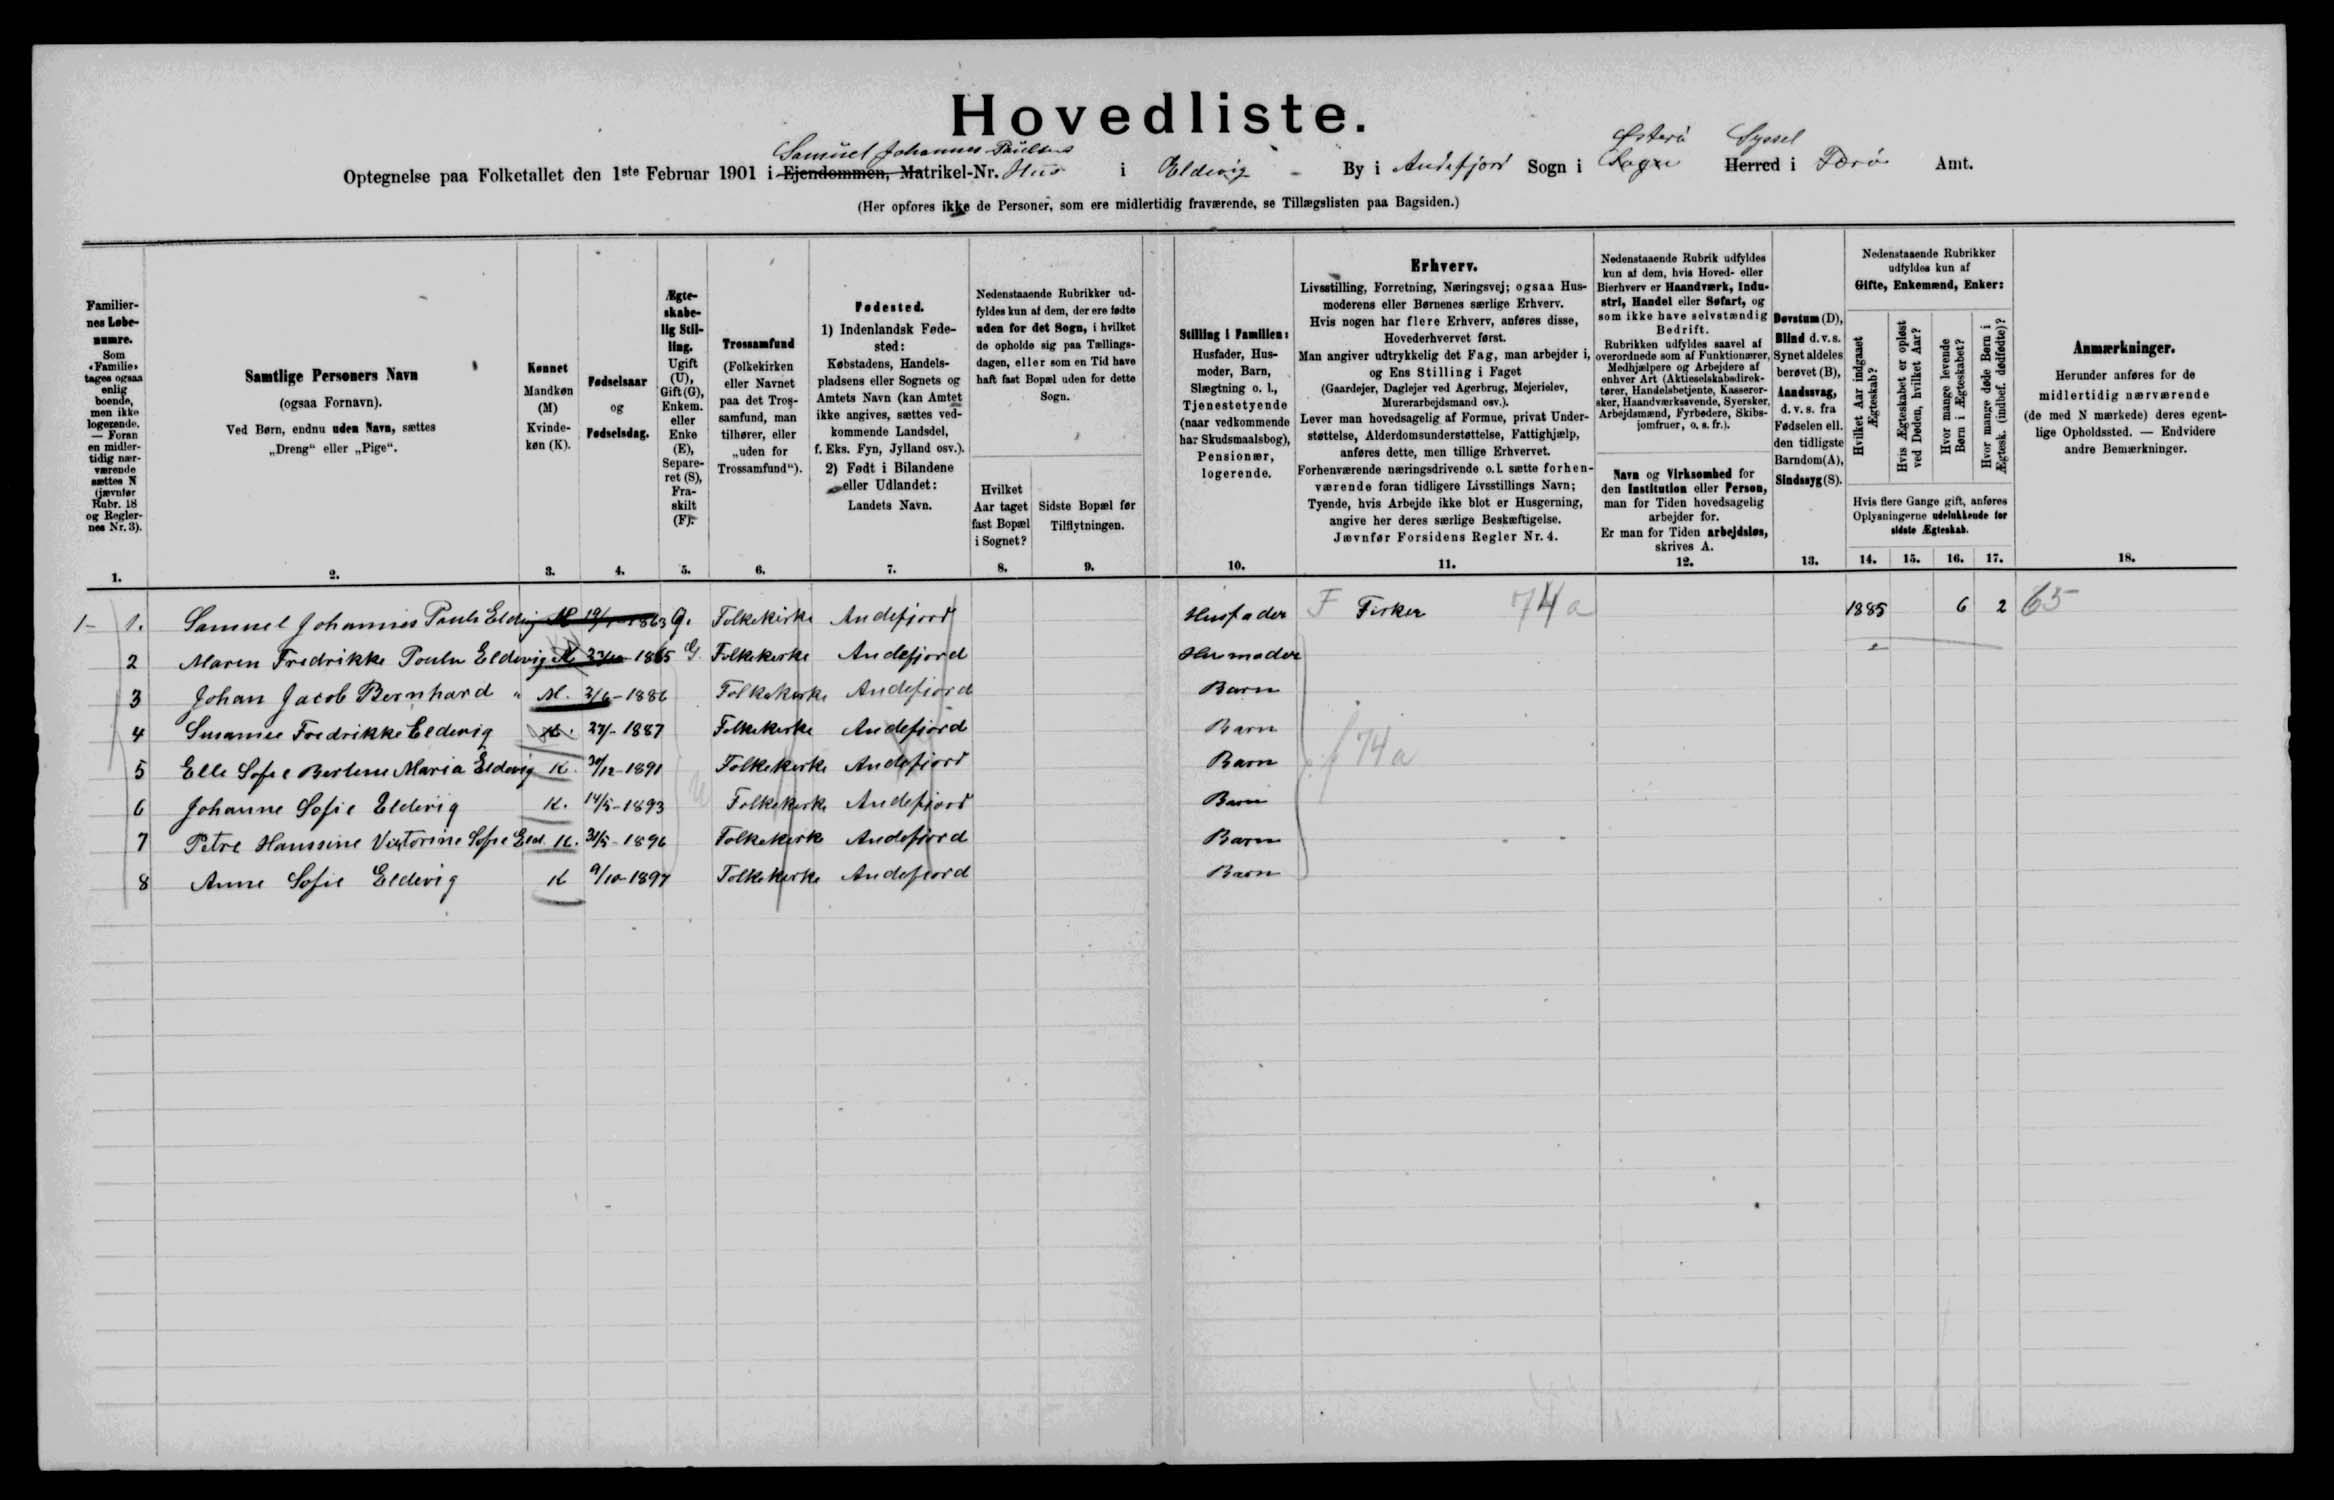 Hovedliste.
Samuel Johannes Paulsens Østerø Syssel
Optegnelse paa Folketallet den 1ste Februar 1901 i Ejendommen, Matrikel-Nr. Hus i Eldevig By i Andefjord Sogn i Herred i Færø Amt.
(Her opføres ikke de Personer, som ere midlertidig fraværende, se Tillægslisten paa Bagsiden.)
Familiernes Løbenumre.
Som «Familie» tages ogsaa enlig boende, men ikke logerende. — Foran en midlertidig nærværende sættes N (jævnfør Rubr. 18 og Reglernes Nr. 3).
1.
Samtlige Personers Navn
(ogsaa Fornavn).
Ved Børn, endnu uden Navn, sættes
„Dreng“ eller „Pige“.
2.
Kønnet
Mandkøn
(M)
Kvinde-
køn (K).
3.
Fødselsaar
og
Fødselsdag.
4.
Ægte-
skabe-
lig Stil-
ling.
Ugift
(U),
Gift (G),
Enkem.
eller
Enke
(E),
Separe-
ret (S),
Fra-
skilt
(F).
5.
Trossamfund
(Folkekirken
eller Navnet
paa det Tros-
samfund, man
tilhører, eller
„uden for
Trossamfund“).
6.
Fødested.
1) Indenlandsk Føde-
sted:
Købstadens, Handels-
pladsens eller Sognets og
Amtets Navn (kan Amtet
ikke angives, sættes ved-
kommende Landsdel,
f. Eks. Fyn, Jylland osv.).
2) Født i Bilandene
eller Udlandet:
Landets Navn.
7.
Nedenstaaende Rubrikker ud-
fyldes kun af dem, der ere fødte
uden for det Sogn, i hvilket
de opholde sig paa Tællings-
dagen, eller som en Tid have
haft fast Bopæl uden for dette
Sogn.
Hvilket
Aar taget
fast Bopæl
i Sognet?
8.
Sidste Bopæl før
Tilflytningen.
9.
Stilling i Familien:
Husfader, Hus-
moder, Barn,
Slægtning o. l.,
Tjenestetyende
(naar vedkommende
har Skudsmaalsbog),
Pensionær,
logerende.
10.
Erhverv.
Livsstilling, Forretning, Næringsvej; ogsaa Hus-
moderens eller Børnenes særlige Erhverv.
Hvis nogen har flere Erhverv, anføres disse,
Hovederhvervet først.
Man angiver udtrykkelig det Fag, man arbejder i,
og Ens Stilling i Faget
(Gaardejer, Daglejer ved Agerbrug, Mejerielev,
Murerarbejdsmand osv.).
Lever man hovedsagelig af Formue, privat Under-
støttelse, Alderdomsunderstøttelse, Fattighjælp,
anføres dette, men tillige Erhvervet.
Forhenværende næringsdrivende o. l. sætte forhen-
værende foran tidligere Livsstillings Navn;
Tyende, hvis Arbejde ikke blot er Husgerning,
angive her deres særlige Beskæftigelse.
Jævnfør Forsidens Regler Nr. 4.
11.
Nedenstaaende Rubrik udfyldes
kun af dem, hvis Hoved- eller
Bierhverv er Haandværk, Indu-
stri, Handel eller Søfart, og
som ikke have selvstændig
Bedrift.
Rubrikken udfyldes saavel af
overordnede som af Funktionærer,
Medhjælpere og Arbejdere af
enhver Art (Aktieselskabsdirek-
tører, Handelsbetjente, Kasserer-
sker, Haandværkssvende, Syersker,
Arbejdsmænd, Fyrbødere, Skibs-
jomfruer, o. s. fr.).
Navn og Virksomhed for
den Institution eller Person,
man for Tiden hovedsagelig
arbejder for.
Er man for Tiden arbejdsløs,
skrives A.
12.
Døvstum (D),
Blind d. v. s.
Synet aldeles
berøvet (B),
Aandssvag,
d. v. s. fra
Fødselen ell.
den tidligste
Barndom (A),
Sindssyg (S).
13.
Nedenstaaende Rubrikker
udfyldes kun af
Gifte, Enkemænd, Enker:
Hvilket Aar indgaaet
Ægteskab?
Hvis Ægteskabet er opløst
ved Døden, hvilket Aar?
Hvor mange levende
Børn i Ægteskabet?
Hvor mange døde Børn i
Ægtesk. (indbef. dødfødte)?
Hvis flere Gange gift, anføres
Oplysningerne udelukkende for
sidste Ægteskab.
14. 15. 16. 17.
Anmærkninger.
Herunder anføres for de
midlertidig nærværende
(de med N mærkede) deres egent-
lige Opholdssted. — Endvidere
andre Bemærkninger.
18.
1- 1. Samuel Johannes Pauls Eldvig M 1863 G. Folkekirke Andefjord Husfader F Fisker 74a 1885 6 2 65
2 Maren Fredrikke Poulsen Eldevig 1865 G Folkekirke Andefjord Husmoder
3 Johan Jacob Bernhard " M. 2/6-1886 Folkekirke Andefjord Barn
4 Susanne Fredrikke Eldevig K. 1887 Folkekirke Andefjord Barn
5 Elle Sofie Bertine Maria Eldevig K. 30/12-1891 Folkekirke Andefjord Barn 74a
6 Johanne Sofie Eldevig K. 14/5-1893 U Folkekirke Andefjord Barn
7 Petre Hanssine Viktorine Sofie Eld. K. 31/5-1896 Folkekirke Andefjord Barn
8 Anne Sofie Eldevig K 9/10-1897 Folkekirke Andefjord Barn